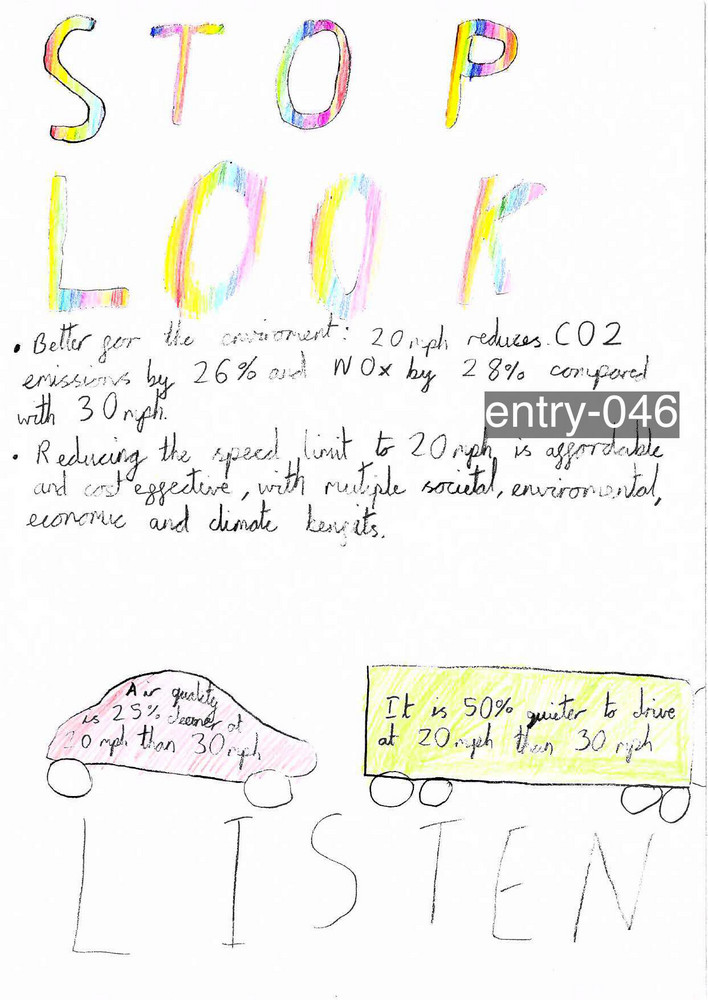 STOP
LOOK
• Better for the enviroment: 20mph reduces CO2
emissions by 26% and NOx by 28% compared
with 30mph.
entry-046
• Reducing the speed limit to 20mph is affordable
and cost effective, with multiple societal, enviromental,
economic and climate benefits.
Air quality
is 25% cleaner at
20 mph than 30mph
It is 50% quieter to drive
at 20mph than 30 mph
LISTEN